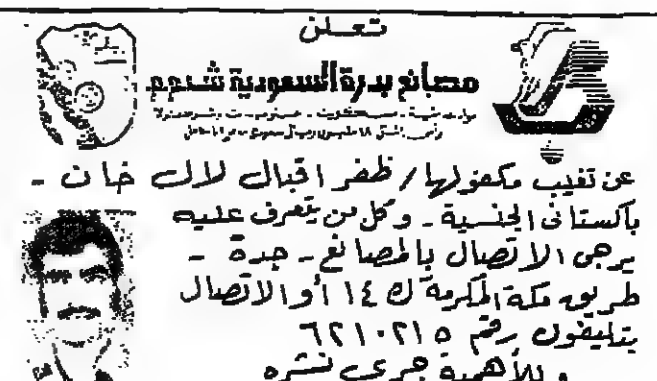 تعلن
مصانع بدرة السعودية ش.ذ.م.م
عن تغيب مكفولها / ظفر اقبال لال خان -
باكستاني الجنسية - وكل من يتعرف عليه
يرجى الاتصال بالمصانع - جدة -
طريق مكة المكرمة ك ١٤ أو الاتصال
بتليفون رقم ٦٢١٠٢١٥
وللأهمية جرى نشره